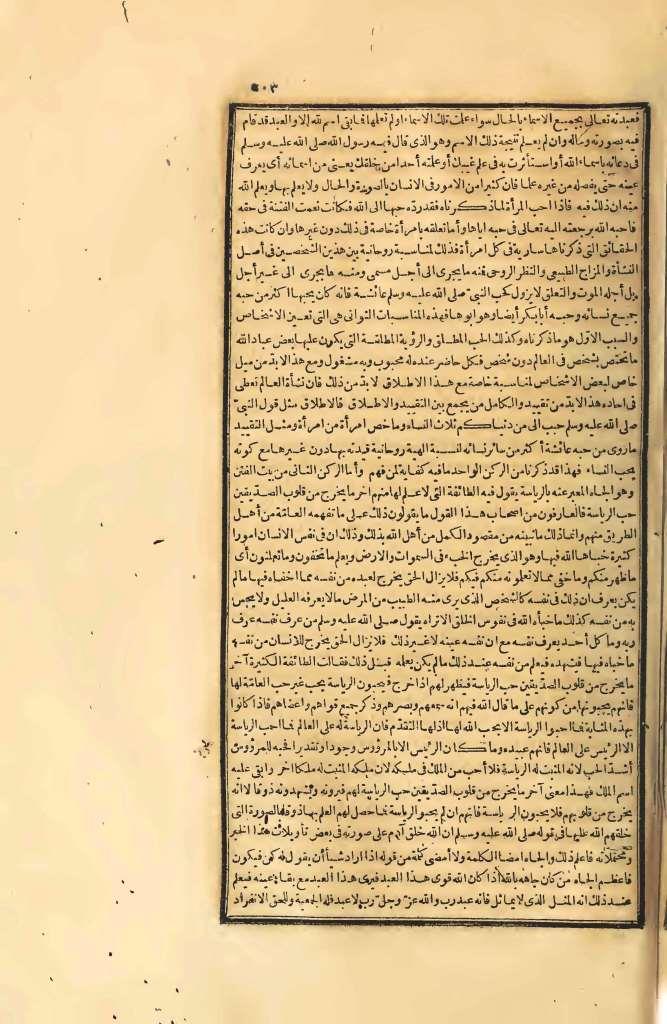 ٥٠٣
فعبدته تعالى بجميع الاسماء بالحال سواء علمت تلك الاسماء أو لم تعلمها فما بقى اسم لله إلا والعبد قد قام
فيه بصورته وحاله وان لم يعلم نتيجة ذلك الاسم وهو الذى قال فيه رسول الله صلى الله عليه وسلم
فى دعائه باسماء الله أو استأثرت به فى علم غيبك أو علمته أحدا من خلقك يعنى من اسمائه أى يعرف
عينه حتى يفصله من غيره علما فان كثيرا من الامور فى الانسان بالصورة والحال ولا يعلم بها ويعلم الله
منه ان ذلك فيه فاذا احب المرأة لما ذكرناه فقد رده حبها الى الله فكانت نعمت الفتنة فى حقه
فاحبه الله برجعته اليه تعالى فى حبه اياها وأما تعلقه بامرأة خاصة فى ذلك دون غيرها وان كانت هذه
الحقائق التى ذكرناها سارية فى كل امرأة فذلك لمناسبة روحانية بين هذين الشخصين فى أصل
النشأة والمزاج الطبيعى والنظر الروحى فمنه ما يجرى الى أجل مسمى ومنه ما يجرى الى غير أجل
بل أجله الموت والتعلق لا يزول كحب النبى صلى الله عليه وسلم عائشة فانه كان يحبها اكثر من حبه
جميع نسائه وحبه أبا بكر أيضا وهو ابوها فهذه المناسبات الثوانى هى التى تعين الاشخاص
والسبب الاول هو ما ذكرناه وكذلك الحب المطلق والرؤية المطلقة التى يكون عليها بعض عباد الله
ما تختص بشخص فى العالم دون شخص فكل حاضر عنده له محبوب وبه مشغول ومع هذا لابد من ميل
خاص لبعض الاشخاص لمناسبة خاصة مع هذا الاطلاق لابد من ذلك فان نشأة العالم تعطى
فى احاده هذا لابد من تقييد والكامل من يجمع بين التقييد والاطلاق فالاطلاق مثل قول النبى
صلى الله عليه وسلم حبب الى من دنياكم ثلاث النساء وما خص امرأة من امرأة ومثل التقييد
ما روى من حبه عائشة أكثر من سائر نسائه لنسبة الهية روحانية قيدته بها دون غيرها مع كونه
يحب النساء فهذا قد ذكرنا من الركن الواحد ما فيه كفاية لمن فهم وأما الركن الثانى من بيت الفتن
وهو الجاه المعبر عنه بالرياسة يقول فيه الطائفة التى لا علم لها منهم آخر ما يخرج من قلوب الصديقين
حب الرياسة فالعارفون من اصحاب هذا القول ما يقولون ذلك على ما تفهمه العامة من أهل
الطريق منهم وانما ذلك ما نبينه من مقصود الكمل من أهل الله بذلك وذلك ان فى نفس الانسان امورا
كثيرة خباها الله فيها وهو الذى يخرج الخبء فى السموات والارض ويعلم ما تخفون وما تعلنون أى
ما ظهر منكم وما خفى مما لا تعلمونه منكم فيكم فلا يزال الحق يخرج لعبده من نفسه مما اخفاه فيها ما لم
يكن يعرف ان ذلك فى نفسه كالشخص الذى يرى منه الطبيب من المرض ما لا يعرفه العليل ولا يحس
به من نفسه كذلك ما خبأه الله فى نفوس الخلق الا تراه يقول صلى الله عليه وسلم من عرف نفسه عرف
ربه وما كل أحد يعرف نفسه مع ان نفسه عينه لا غير ذلك فلا يزال الحق يخرج للانسان من نفسه
ما خباه فيها فيشهده فيعلم من نفسه عند ذلك ما لم يكن يعلمه قبل ذلك فقالت الطائفة الكثيرة آخر
ما يخرج من قلوب الصديقين حب الرياسة فيظهر لهم اذا خرج فيحبون الرياسة بحب غير حب العامة لها
فانهم يحبونها من كونهم على ما قال الله فيهم انه سمعهم وبصرهم وذكر جميع قواهم واعضاهم فاذا كانوا
بهذه المثابة فما احبوا الرياسة الا بحب الله لها اذ لها التقدم فان الرياسة له على العالم فما احب الرياسة
الا الرئيس على العالم فانهم عبيده وما كان الرئيس الا بالمرؤوس وجودا وتقديرا فحبه للمرؤوس
أشد الحب لانه المثبت له الرياسة فلا أحب من الملك فى ملكه لان ملكه المثبت له ملكا
اسم الملك فهذا معنى آخر ما يخرج من قلوب الصديقين حب الرياسة لهم فيرونه ويشهدونه ذوقا لا انه
يخرج من قلوبهم فلا يحبون الرياسة فانهم ان لم يحبوا الرياسة فما حصل لهم العلم بها ذوقا وهى الصورة التى
خلقهم الله عليها فى قوله صلى الله عليه وسلم ان الله خلق آدم على صورته فى بعض تأويلات هذا الخبر
ومحتملاته فاعلم ذلك والجاه امضاء الكلمة ولا أمضى كلمة من قوله اذا اراد شيأ أن يقول له كن فيكون
فاعظم الجاه من كان جاهه بالله اذا كان الله قوى هذا العبد فيرى هذا العبد مع بقاء عينه فيعلم
عند ذلك انه المثل الذى لا يماثل فانه عبد رب والله عز وجل رب لا عبد فله الجمعية وللحق الانفراد